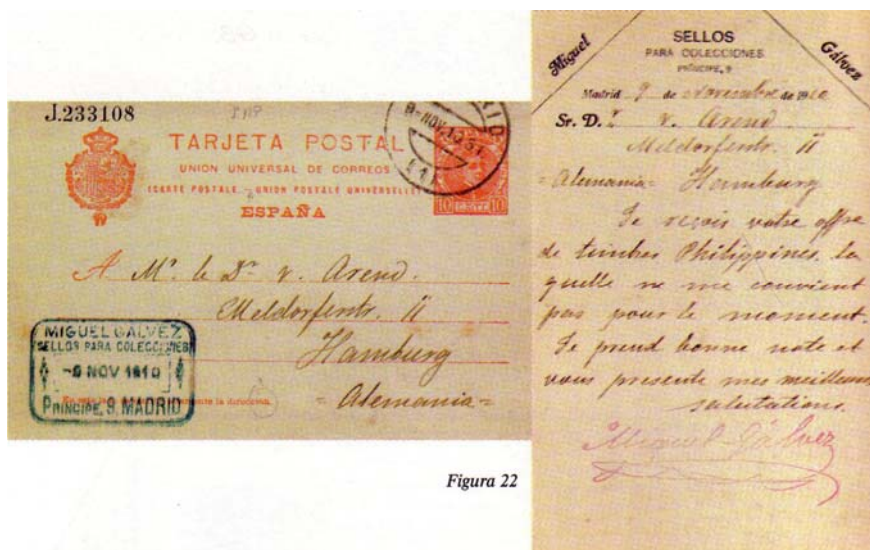 J.233108
TARJETA POSTAL
UNION UNIVERSAL DE CORREOS
(CARTE POSTALE - UNION POSTALE UNIVERSELLE)
ESPAÑA
10 CENTS 10
NOV.10
A Mr. le Dr. v. Arend.
Meldorfentr. 11
Hamburg
= Alemania =
MIGUEL GALVEZ
SELLOS PARA COLECCIONES
NOV 1910
PRÍNCIPE, 9. MADRID
la dirección.
Figura 22
Miguel Gálvez
SELLOS
PARA COLECCIONES
PRÍNCIPE, 9
Madrid 9 de Novembre de 1910
Sr. D. v. Arend.
Meldorfentr. 11
= Alemania = Hamburg
Je reçois votre offre
de timbres Philippines, la
quelle ne me convient
pas pour le moment.
Je prend bonne note et
vous presente mes meilleurs
salutations.
Miguel Gálvez